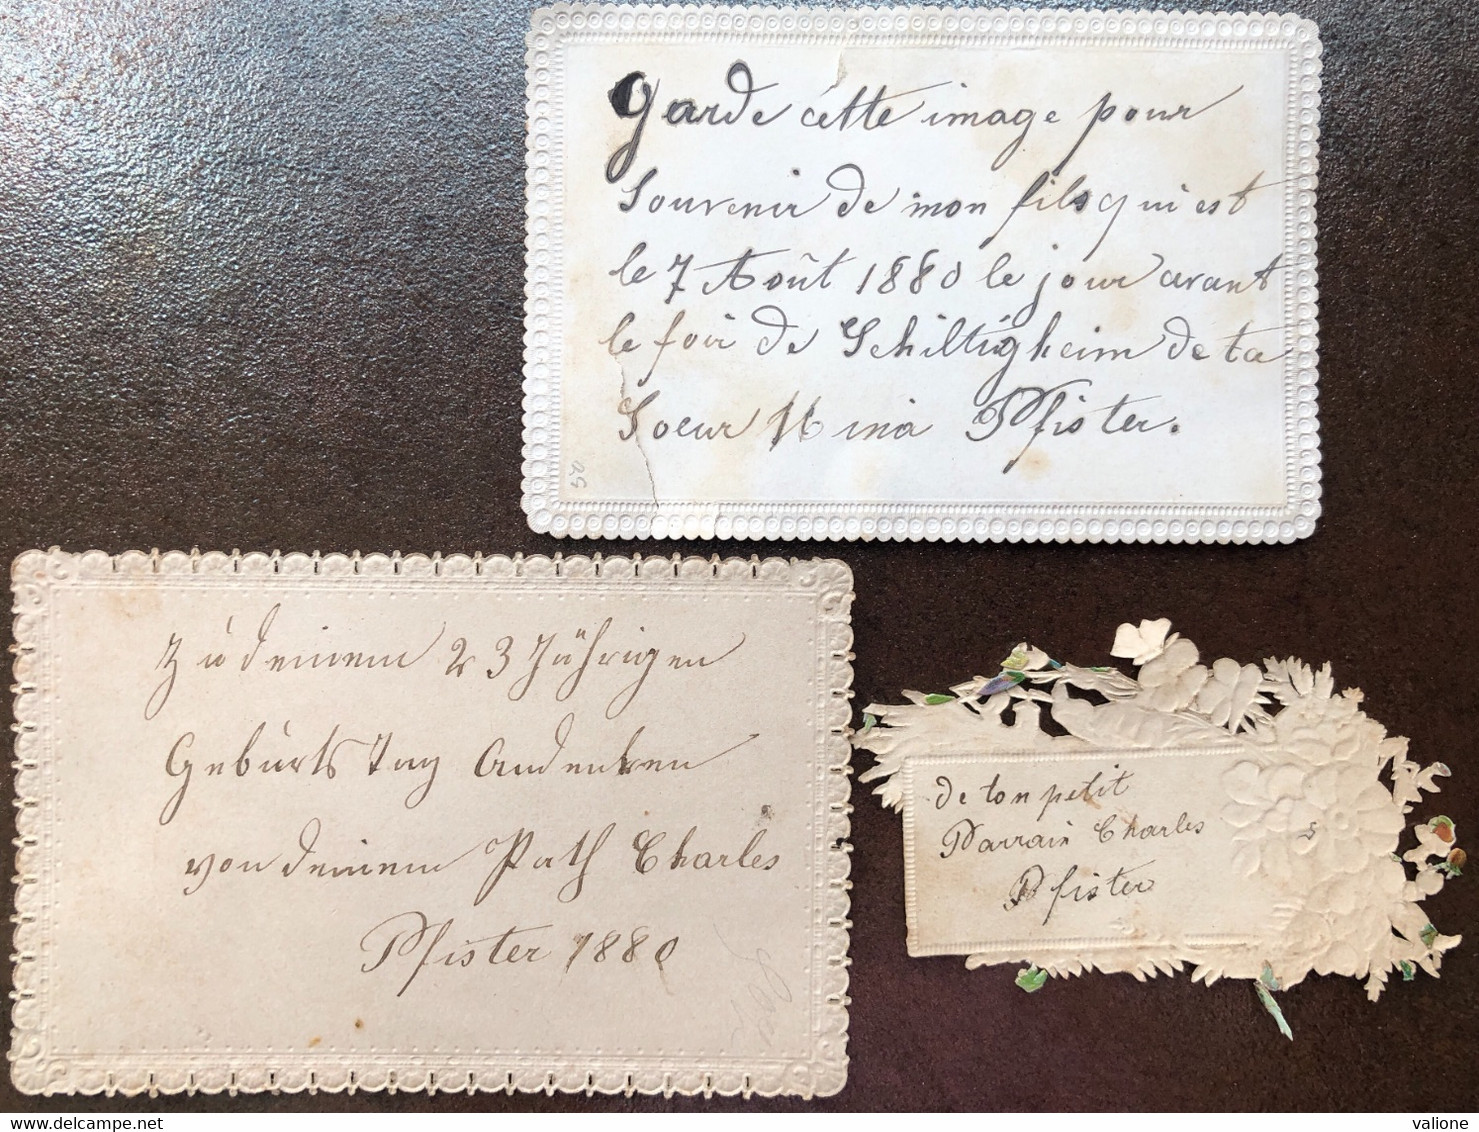 Garde cette image pour
Souvenir de mon fils qui est
le 7 Août 1880 le jour avant
le foir de Schiltigheim de ta
Soeur Mina Pfister.
50
Zu deinem 23 Jährigen
Geburts Tag Andenken
von deinem Path Charles
Pfister 1880
de ton petit
Parrain Charles
Pfister
delcampe.net
valione